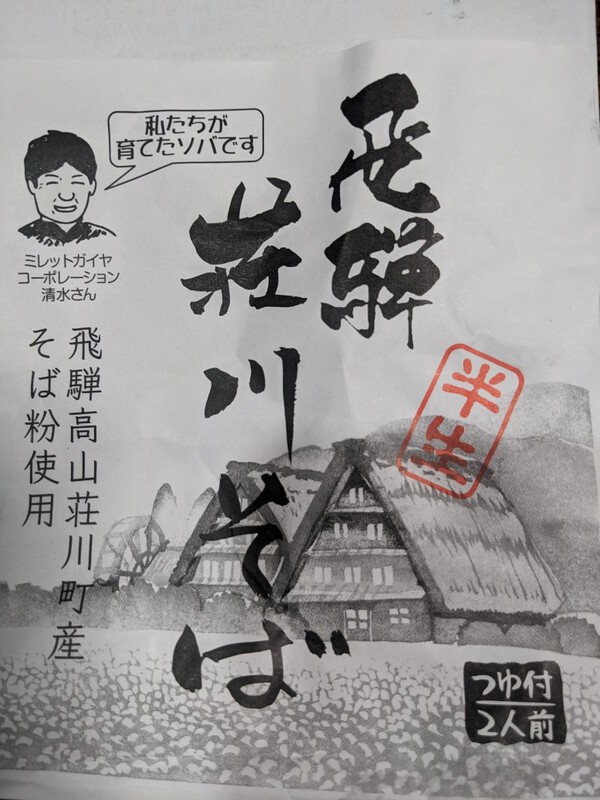 飛騨
荘川そば
私たちが
育てたソバです
ミレットガイヤ
コーポレーション
清水さん
飛騨高山荘川町産
そば粉使用
半生
つゆ付
2人前